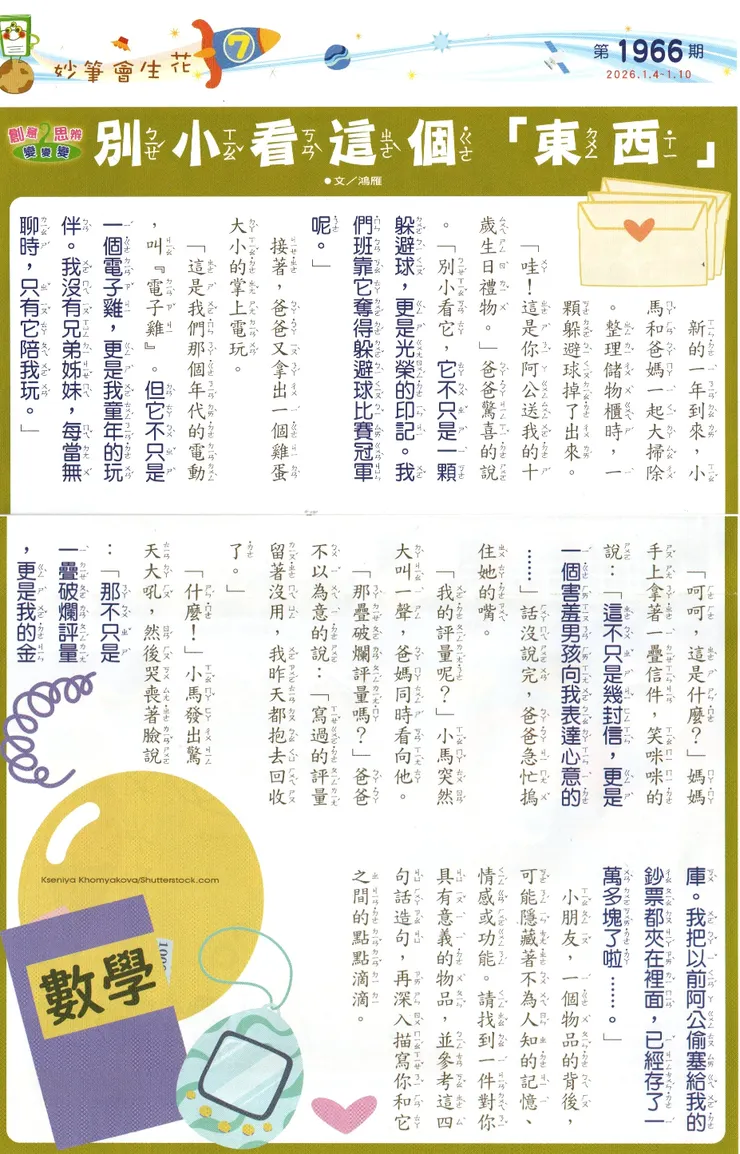 妙筆會生花
7
第1966期
2026.1.4~1.10
創意思辨
變變變
別小看這個「東西」
●文／鴻雁
新的一年到來，小
馬和爸媽一起大掃除
。整理儲物櫃時，一
顆躲避球掉了出來。
「哇！這是你阿公送我的十
歲生日禮物。」爸爸驚喜的說
。「別小看它，它不只是一顆
躲避球，更是光榮的印記。我
們班靠它奪得躲避球比賽冠軍
呢。」
接著，爸爸又拿出一個雞蛋
大小的掌上電玩。
「這是我們那個年代的電動
，叫『電子雞』。但它不只是
一個電子雞，更是我童年的玩
伴。我沒有兄弟姊妹，每當無
聊時，只有它陪我玩。」
「呵呵，這是什麼？」媽媽
手上拿著一疊信件，笑咪咪的
說：「這不只是幾封信，更是
一個害羞男孩向我表達心意的
……」話沒說完，爸爸急忙摀
住她的嘴。
「我的評量呢？」小馬突然
大叫一聲，爸媽同時看向他。
「那疊破爛評量嗎？」爸爸
不以為意的說：「寫過的評量
留著沒用，我昨天都抱去回收
了。」
「什麼！」小馬發出驚
天大吼，然後哭喪著臉說
：「那不只是
一疊破爛評量
，更是我的金
庫。我把以前阿公偷塞給我的
鈔票都夾在裡面，已經存了一
萬多塊了啦……。」
小朋友，一個物品的背後，
可能隱藏著不為人知的記憶、
情感或功能。請找到一件對你
具有意義的物品，並參考這四
句話造句，再深入描寫你和它
之間的點點滴滴。
Kseniya Khomyakova/Shutterstock.com
數學